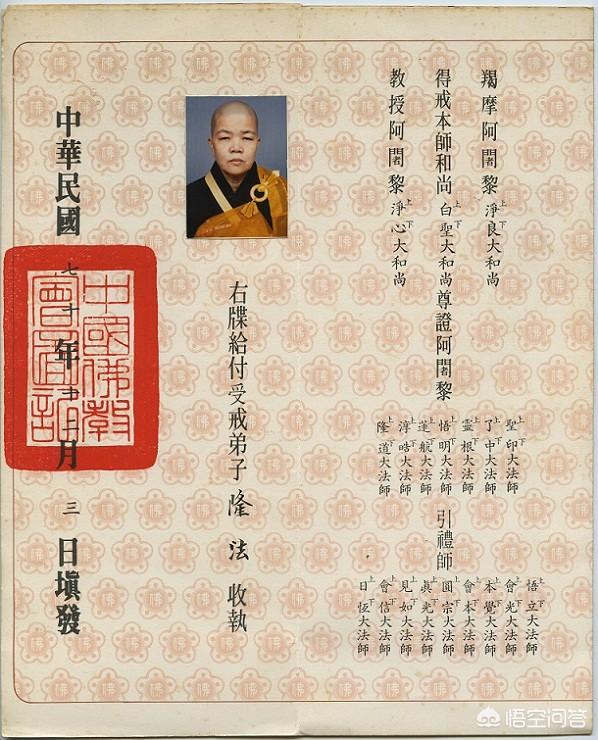 羯摩阿闍黎 上淨下良大和尚
得戒本師和尚 上白下聖大和尚 尊證阿闍黎
教授阿闍黎 上淨下心大和尚
上聖下印大法師
上了下中大法師
上靈下根大法師
上悟下明大法師
上蓮下航大法師
上淳下皓大法師
上隆下道大法師
引禮師
上悟下立大法師
上會下光大法師
上本下覺大法師
上會下本大法師
上圓下宗大法師
上眞下光大法師
上見下如大法師
上會下信大法師
上日下恆大法師
右牒給付受戒弟子 隆法 收執
中華民國七十年十二月三日塡發
中國佛教
會圖記
悟空问答